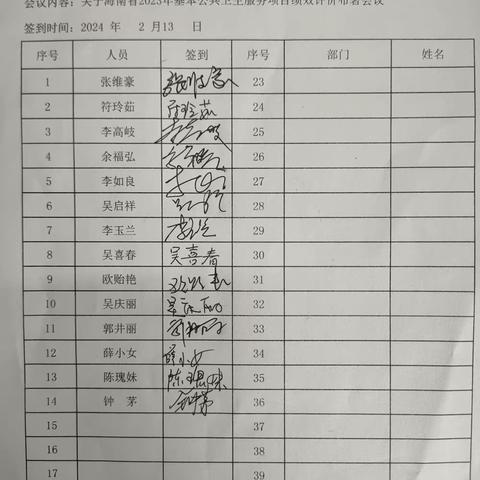 会议内容：关于海南省2023年基本公共卫生服务项目绩效评价布署会议
签到时间：2024 年 2 月13 日
序号 人员 签到 序号 部门 姓名
1 张维豪 张维豪 23
2 符玲茹 符玲茹 24
3 李高岐 李高岐 25
4 余福弘 余福弘 26
5 李如良 27
6 吴启祥 28
7 李玉兰 李玉兰 29
8 吴喜春 吴喜春 30
9 欧贻艳 31
10 吴庆丽 32
11 郭井丽 33
12 薛小女 薛小女 34
13 陈瑰妹 陈瑰妹 35
14 钟 茅 钟茅 36
15 37
16 38
17 39